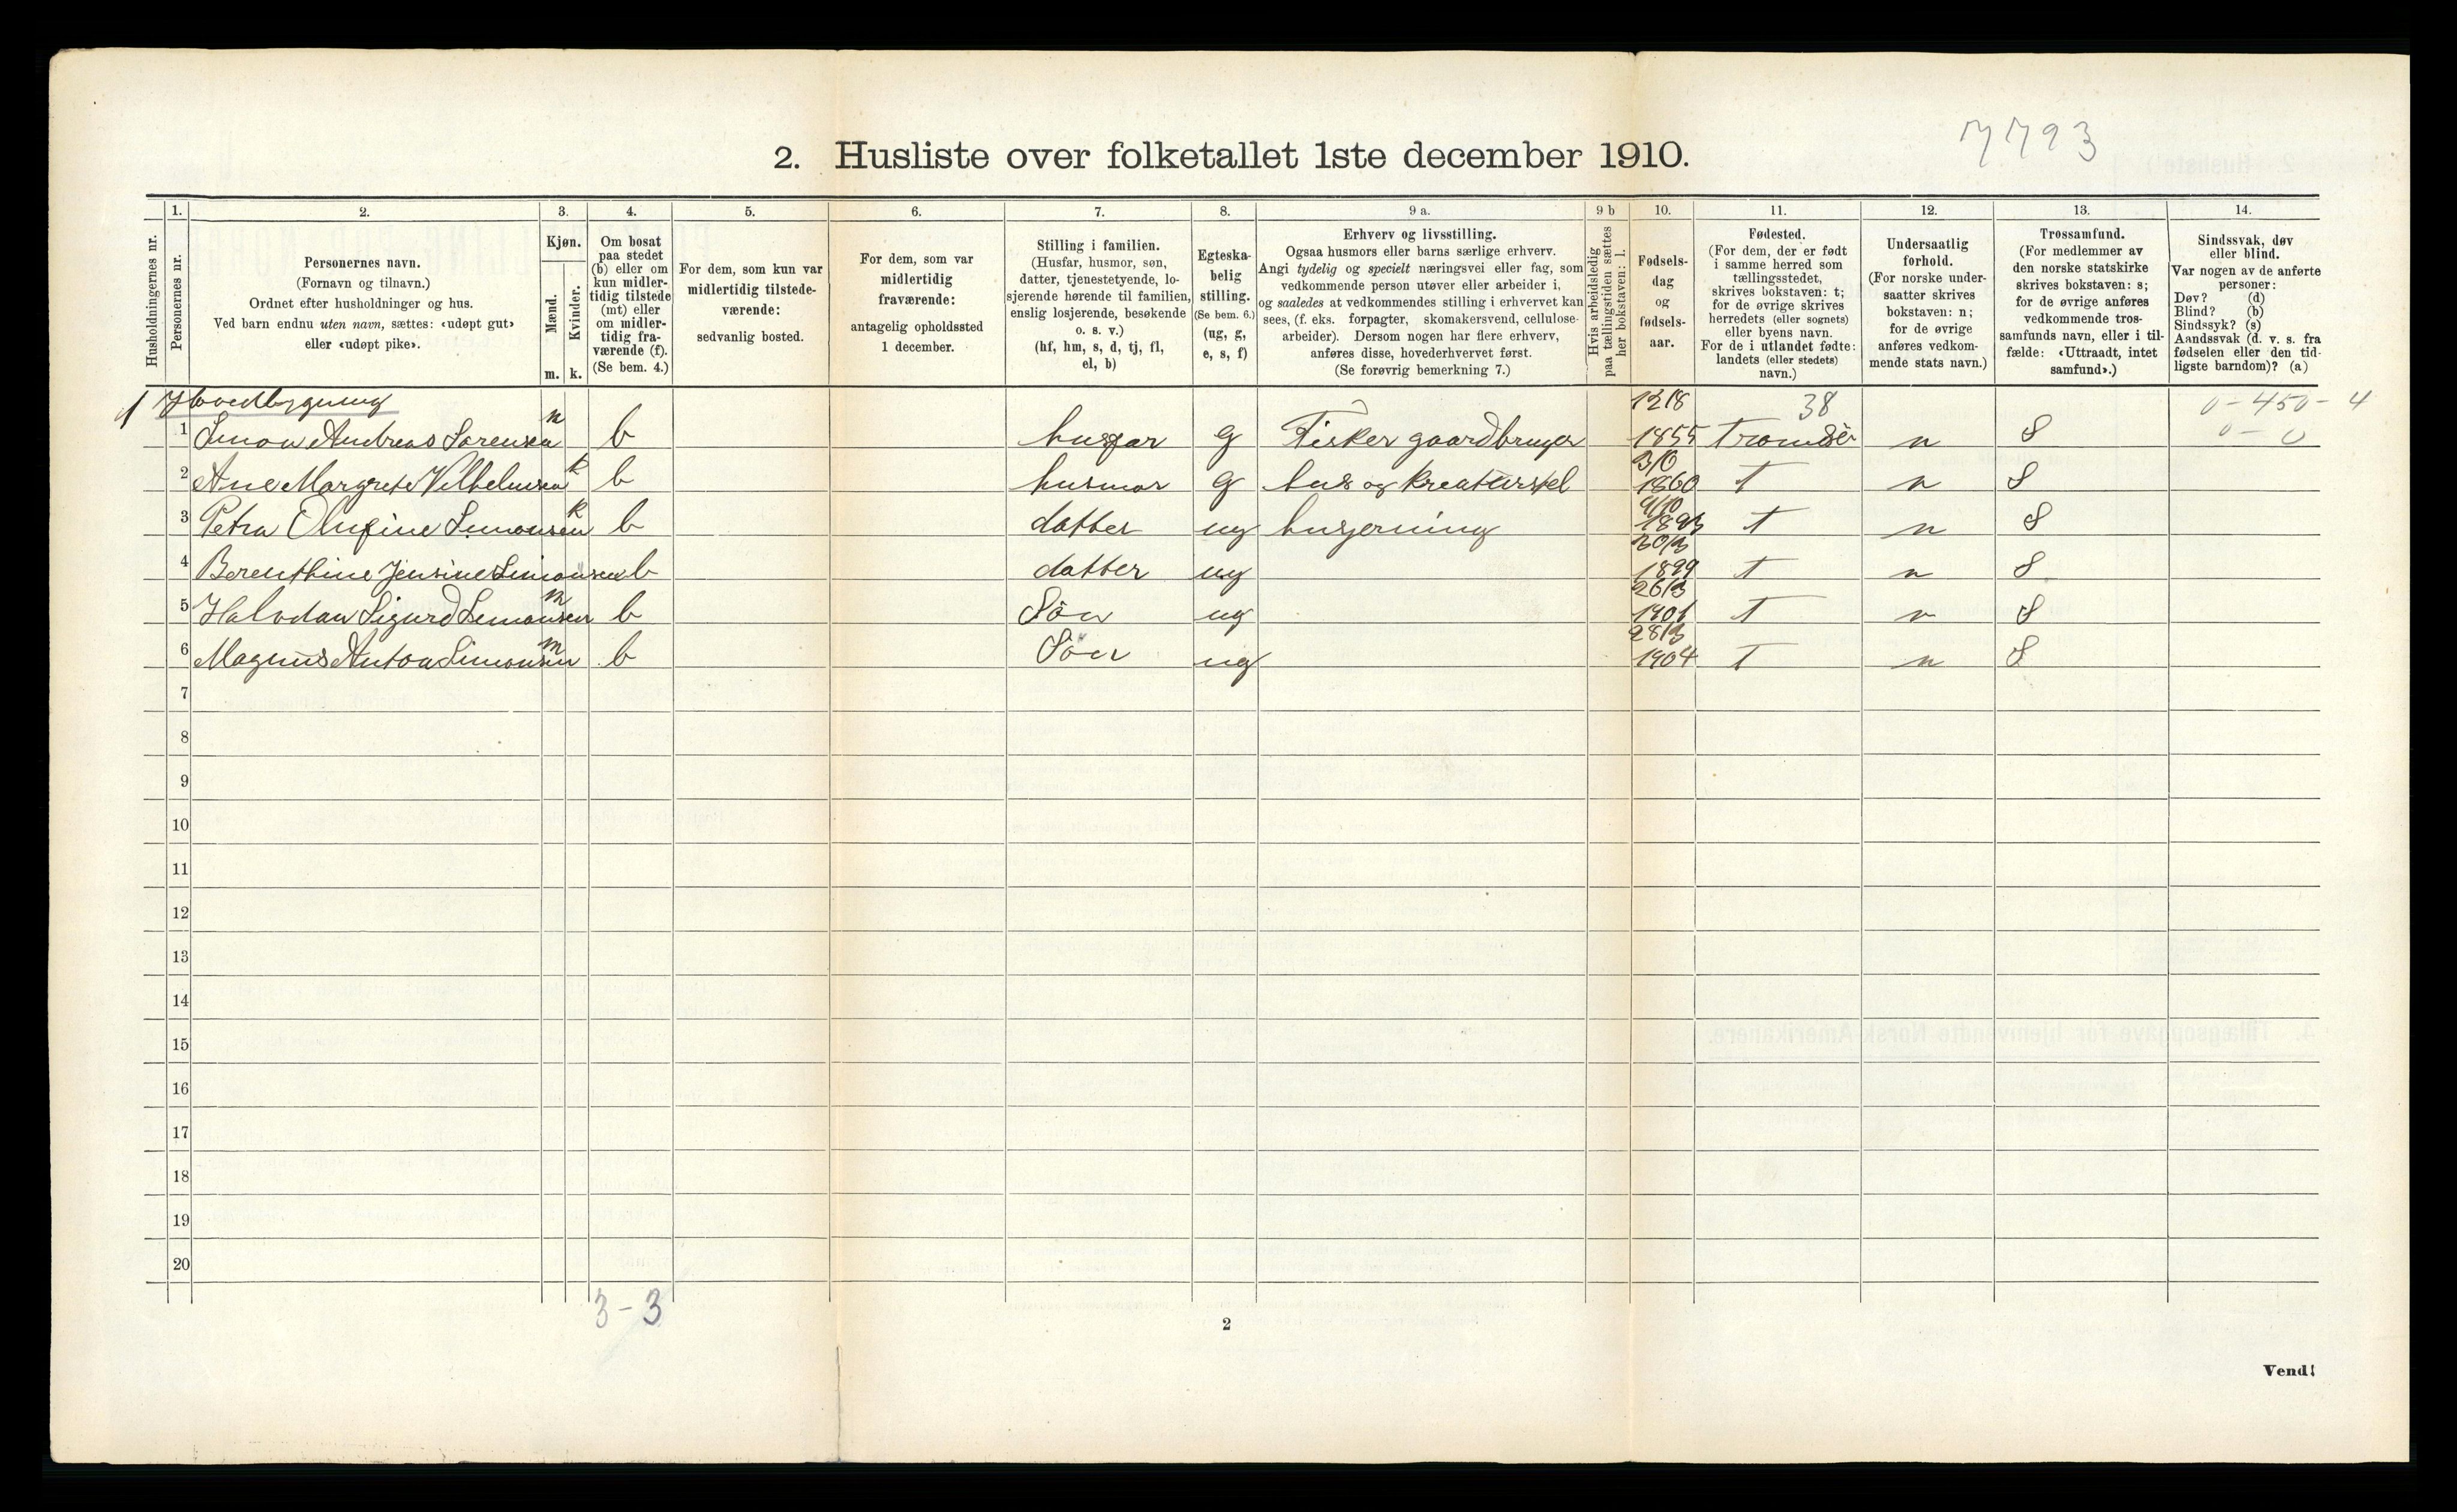 7793
2. Husliste over folketallet 1ste december 1910.
1. 2. 3. 4. 5. 6. 7. 8. 9 a. 9 b 10. 11. 12. 13. 14.
Husholdningernes nr.
Personernes nr.
Personernes navn.
(Fornavn og tilnavn.)
Ordnet efter husholdninger og hus.
Ved barn endnu uten navn, sættes: «udøpt gut»
eller «udøpt pike».
Kjøn.
Mænd.
Kvinder.
m. k.
Om bosat
paa stedet
(b) eller om
kun midler-
tidig tilstede
(mt) eller
om midler-
tidig fra-
værende (f).
(Se bem. 4.)
For dem, som kun var
midlertidig tilstede-
værende:
sedvanlig bosted.
For dem, som var
midlertidig
fraværende:
antagelig opholdssted
1 december.
Stilling i familien.
(Husfar, husmor, søn,
datter, tjenestetyende, lo-
sjerende hørende til familien,
enslig losjerende, besøkende
o. s. v.)
(hf, hm, s, d, tj, fl,
el, b)
Egteska-
belig
stilling.
(Se bem. 6.)
(ug, g,
e, s, f)
Erhverv og livsstilling.
Ogsaa husmors eller barns særlige erhverv.
Angi tydelig og specielt næringsvei eller fag, som
vedkommende person utøver eller arbeider i,
og saaledes at vedkommendes stilling i erhvervet kan
sees, (f. eks. forpagter, skomakersvend, cellulose-
arbeider). Dersom nogen har flere erhverv,
anføres disse, hovederhvervet først.
(Se forøvrig bemerkning 7.)
Hvis arbeidsledig
paa tællingstiden sættes
her bokstaven: l.
Fødsels-
dag
og
fødsels-
aar.
Fødested.
(For dem, der er født
i samme herred som
tællingsstedet,
skrives bokstaven: t;
for de øvrige skrives
herredets (eller sognets)
eller byens navn.
For de i utlandet fødte:
landets (eller stedets)
navn.)
Undersaatlig
forhold.
(For norske under-
saatter skrives
bokstaven: n;
for de øvrige
anføres vedkom-
mende stats navn.)
Trossamfund.
(For medlemmer av
den norske statskirke
skrives bokstaven: s;
for de øvrige anføres
vedkommende tros-
samfunds navn, eller i til-
fælde: «Uttraadt, intet
samfund».)
Sindssvak, døv
eller blind.
Var nogen av de anførte
personer:
Døv? (d)
Blind? (b)
Sindssyk? (s)
Aandssvak (d. v. s. fra
fødselen eller den tid-
ligste barndom)? (a)
1 Hovedbygning 12/8 38 0-450-4
1 Simon Andreas Sørensen m b husfar g Fisker gaardbruger 1855 Tromsö n S 0-0
2 Ane Margrete Vilhelmsen k b husmor g hus og kreaturstel 1860 t n S
3 Petra Olufine Simonsen k b datter ug husgerning 9/10 t n S
4 Berenthine Jensine Simonsen b datter ug 30/3 1899 t n S
5 Halvdan Sigurd Simonsen m b Sön ug 26/3 1901 t n S
6 Magnus Anton Simonsen m b Sön ug 28/3 1904 t n S
7
8
9
10
11
12
13
14
15
16
17
18
19
20
3-3
2
Vend!